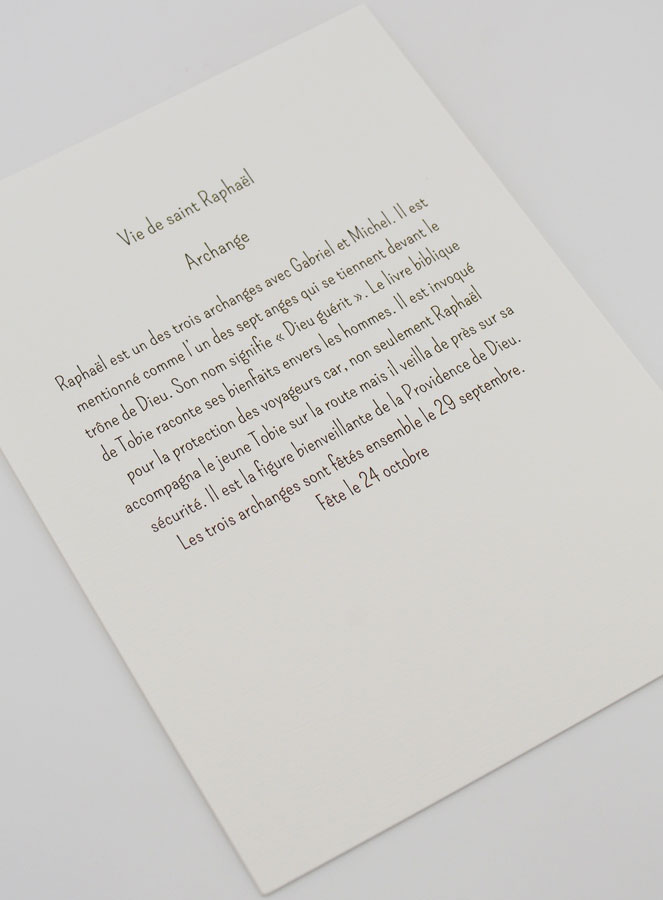 Vie de saint Raphaël
Archange
Raphaël est un des trois archanges avec Gabriel et Michel. Il est
mentionné comme l'un des sept anges qui se tiennent devant le
trône de Dieu. Son nom signifie « Dieu guérit ». Le livre biblique
de Tobie raconte ses bienfaits envers les hommes. Il est invoqué
pour la protection des voyageurs car, non seulement Raphaël
accompagna le jeune Tobie sur la route mais il veilla de près sur sa
sécurité. Il est la figure bienveillante de la Providence de Dieu.
Les trois archanges sont fêtés ensemble le 29 septembre.
Fête le 24 octobre